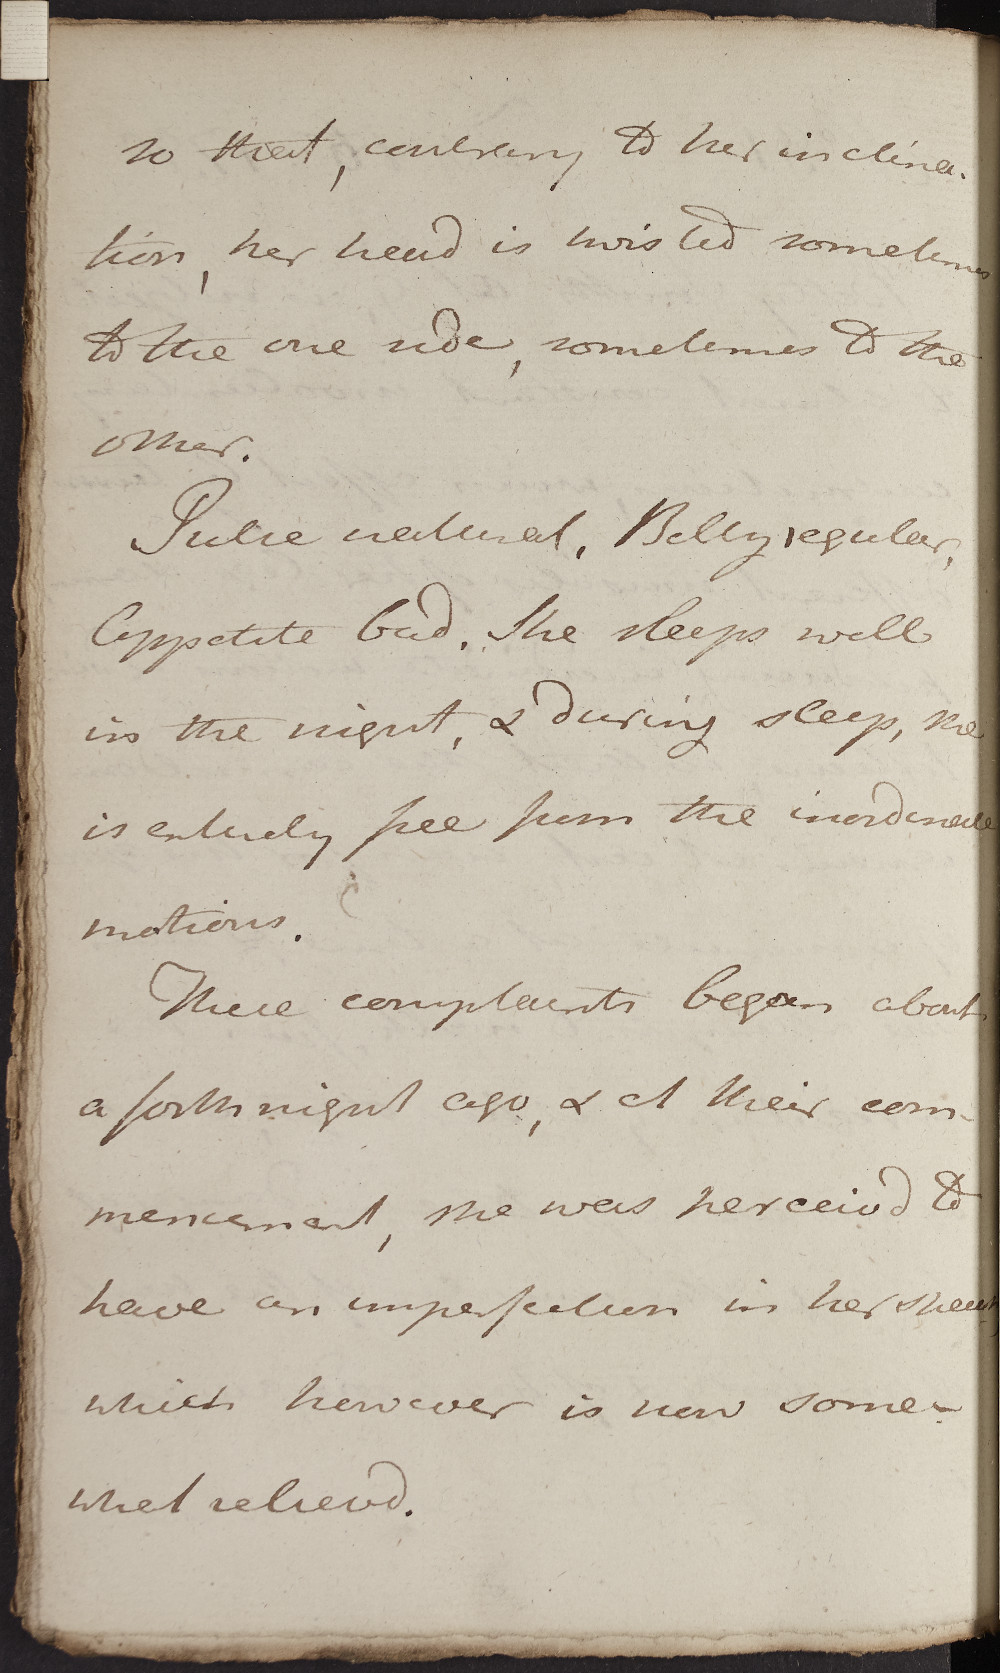 so that, contrary to her inclina-
tion, her head is twisted sometimes
to the one side, sometimes to the
other.
Pulse natural, Belly regular,
Appetite bad. She sleeps well
in the night, & during sleep, she
is entirely free from the inordinate
motions.
These complaints began about
a forthnight ago, & at their com-
mencement, she was perceivd to
have an imperfection in her speech
which however is now some-
what relievd.